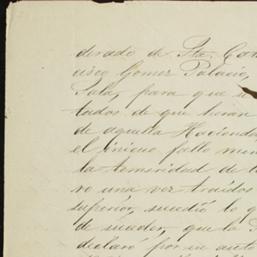 derado de Sta. Con
cisco Gomez Palacio,
Sala, para que se
tados de que horan
de aquella Hacienda
el inicuo fallo men
la temeridad de
ro una vez traidos
superior, sucedió lo q
de suceder, que la
declaró por un auto